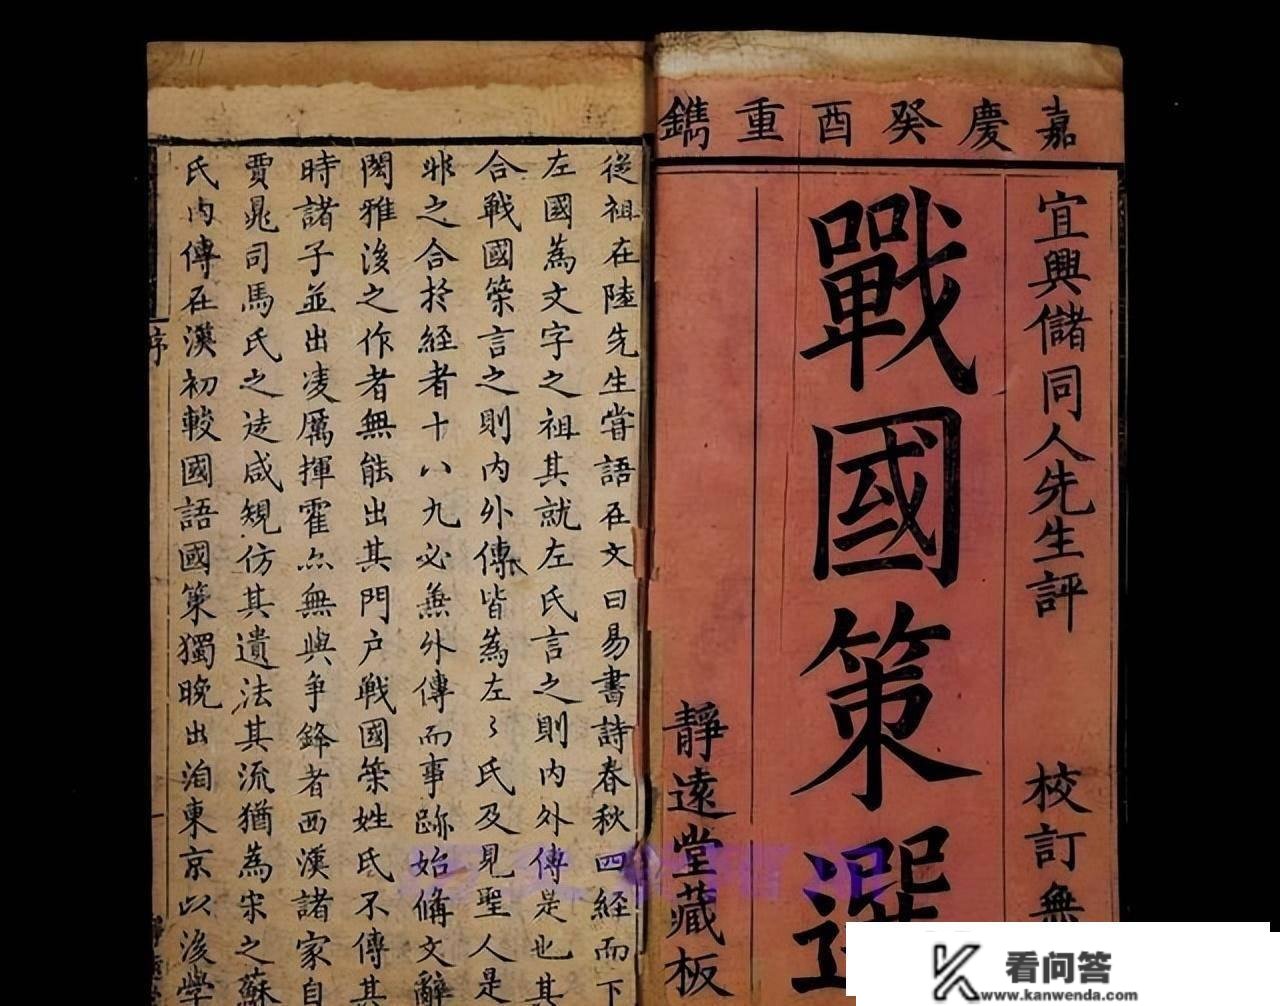 嘉慶癸酉重鐫
宜興儲同人先生評
校訂無
戰國策選
靜遠堂藏板
從祖在陸先生嘗語在文曰易書詩春秋四經而下
左國為文字之祖其就左氏言之則內外傳是也其
合戰國筞言之則內外傳皆為左〻氏及見聖人是
非之合於経者十八九必無外傳而事跡始備文辭
閎雅後之作者無能出其門户戰國筞姓氏不傳其
時諸子並出凌厲揮霍亦無與爭鋒者西漢諸家自
賈鼂司馬氏之迻咸規仿其遺法其流猶為宋之蘇
氏內傳在漢初較國語國策獨晚出洎東京以後學
序
看问答
www.kanwenda.com